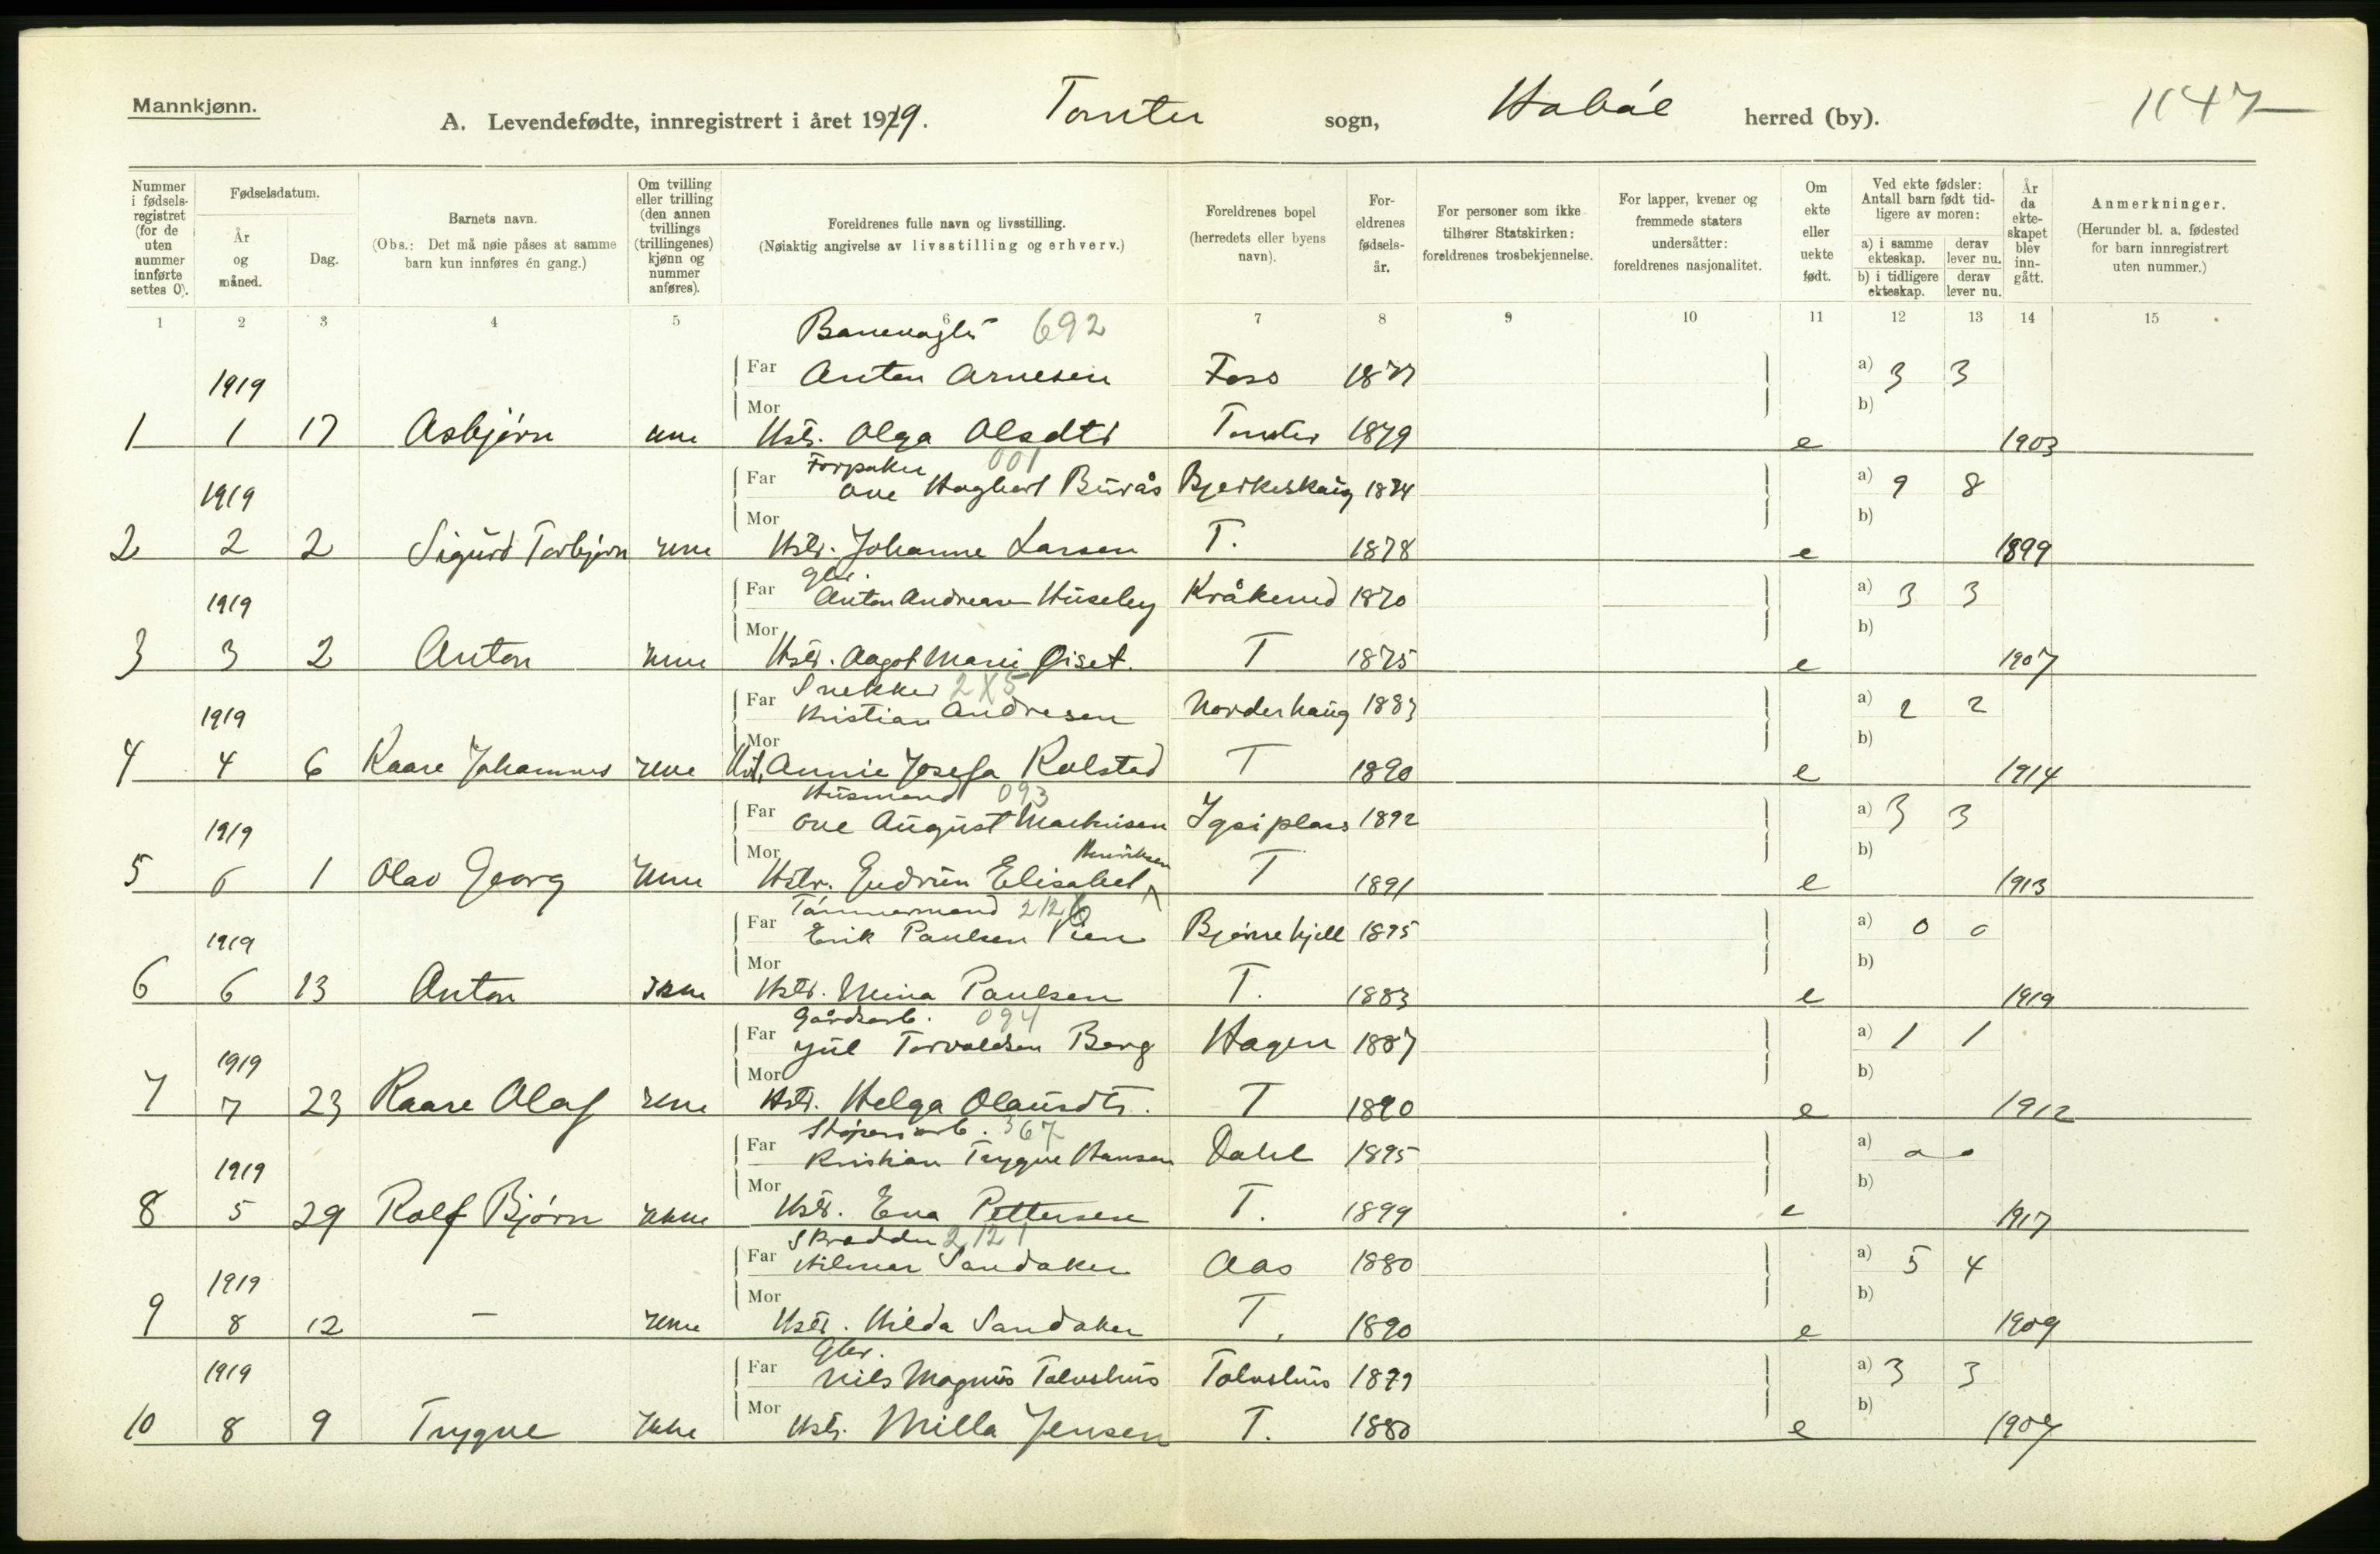 Mannkjønn.
A. Levendefødte, innregistrert i året 1919. Tomter sogn, Hobøl herred (by). 1147
Nummer i fødselsregistret (for de uten nummer innførte settes 0).
Fødselsdatum.
År og måned.
Dag.
Barnets navn.
(Obs.: Det må nøie påses at samme barn kun innføres én gang.)
Om tvilling eller trilling (den annen tvillings (trillingenes) kjønn og nummer anføres).
Foreldrenes fulle navn og livsstilling.
(Nøiaktig angivelse av livsstilling og erhverv.)
Foreldrenes bopel (herredets eller byens navn).
Foreldrenes fødselsår.
For personer som ikke tilhører Statskirken: foreldrenes trosbekjennelse.
For lapper, kvener og fremmede staters undersåtter: foreldrenes nasjonalitet.
Om ekte eller uekte født.
Ved ekte fødsler: Antall barn født tidligere av moren:
a) i samme ekteskap. derav lever nu.
b) i tidligere ekteskap. derav lever nu.
År da ekteskapet blev inngått.
Anmerkninger.
(Herunder bl. a. fødested for barn innregistrert uten nummer.)
1 2 3 4 5 6 7 8 9 10 11 12 13 14 15
Banevogter 692
1919 Far Anton Arnesen Foss 1877 a) 3 3
Mor b)
1 1 17 Asbjørn Hstr. Olga Olsdtr Tomter 1879 e 1903
Forpakter 001
1919 Far Ove Hagbart Burås Bjerkeskaug 1874 a) 9 8
Mor b)
2 2 2 Sigurd Torbjørn Hstr. Johanne Larsen T. 1878 e 1899
Gbr.
1919 Far Anton Andreasen Huseby Kråkerud 1870 a) 3 3
Mor b)
3 3 2 Anton Hstr. Aagot Marie Øiset. T 1875 e 1907
Snekker 2X5
1919 Far Kristian Andresen Norderhaug 1883 a) 2 2
Mor b)
4 4 6 Kaare Johannes Annie Josefa Rolstad T 1890 e 1914
Husmand 093
1919 Far Ove August Mathisen 1892 a) 3 3
Mor Henriksen b)
5 6 1 Olav Georg Hstr. Gudrun Elisabet T 1891 e 1913
Tømmermand 212
1919 Far Erik Paulsen 1895 a) 0 0
Mor b)
6 6 13 Anton Hstr. Mina Paulsen T. 1883 e 1919
Gårdsarb. 094
1919 Far Jul Torvaldsen Berg Hagen 1887 a) 1 1
Mor b)
7 7 23 Kaare Olaf Hstr. Helga Olausdtr. T 1890 e 1912
Støperiarb. 367
1919 Far Kristian Trygve Hansen Dahl 1895 a) 0 0
Mor b)
8 5 29 Rolf Bjørn Hstr. Eva Pettersen T. 1899 e 1917
Skrædder 2121
1919 Far Hilmar Sandaker Aas 1880 a) 5 4
Mor b)
9 8 12 – Hstr. Hilda Sandaker T. 1890 e 1909
Gbr.
1919 Far Nils Magnus Tolvshus Tolvshus 1879 a) 3 3
Mor b)
10 8 9 Trygve Ikke Hstr. Milla Jensen T. 1880 e 1907